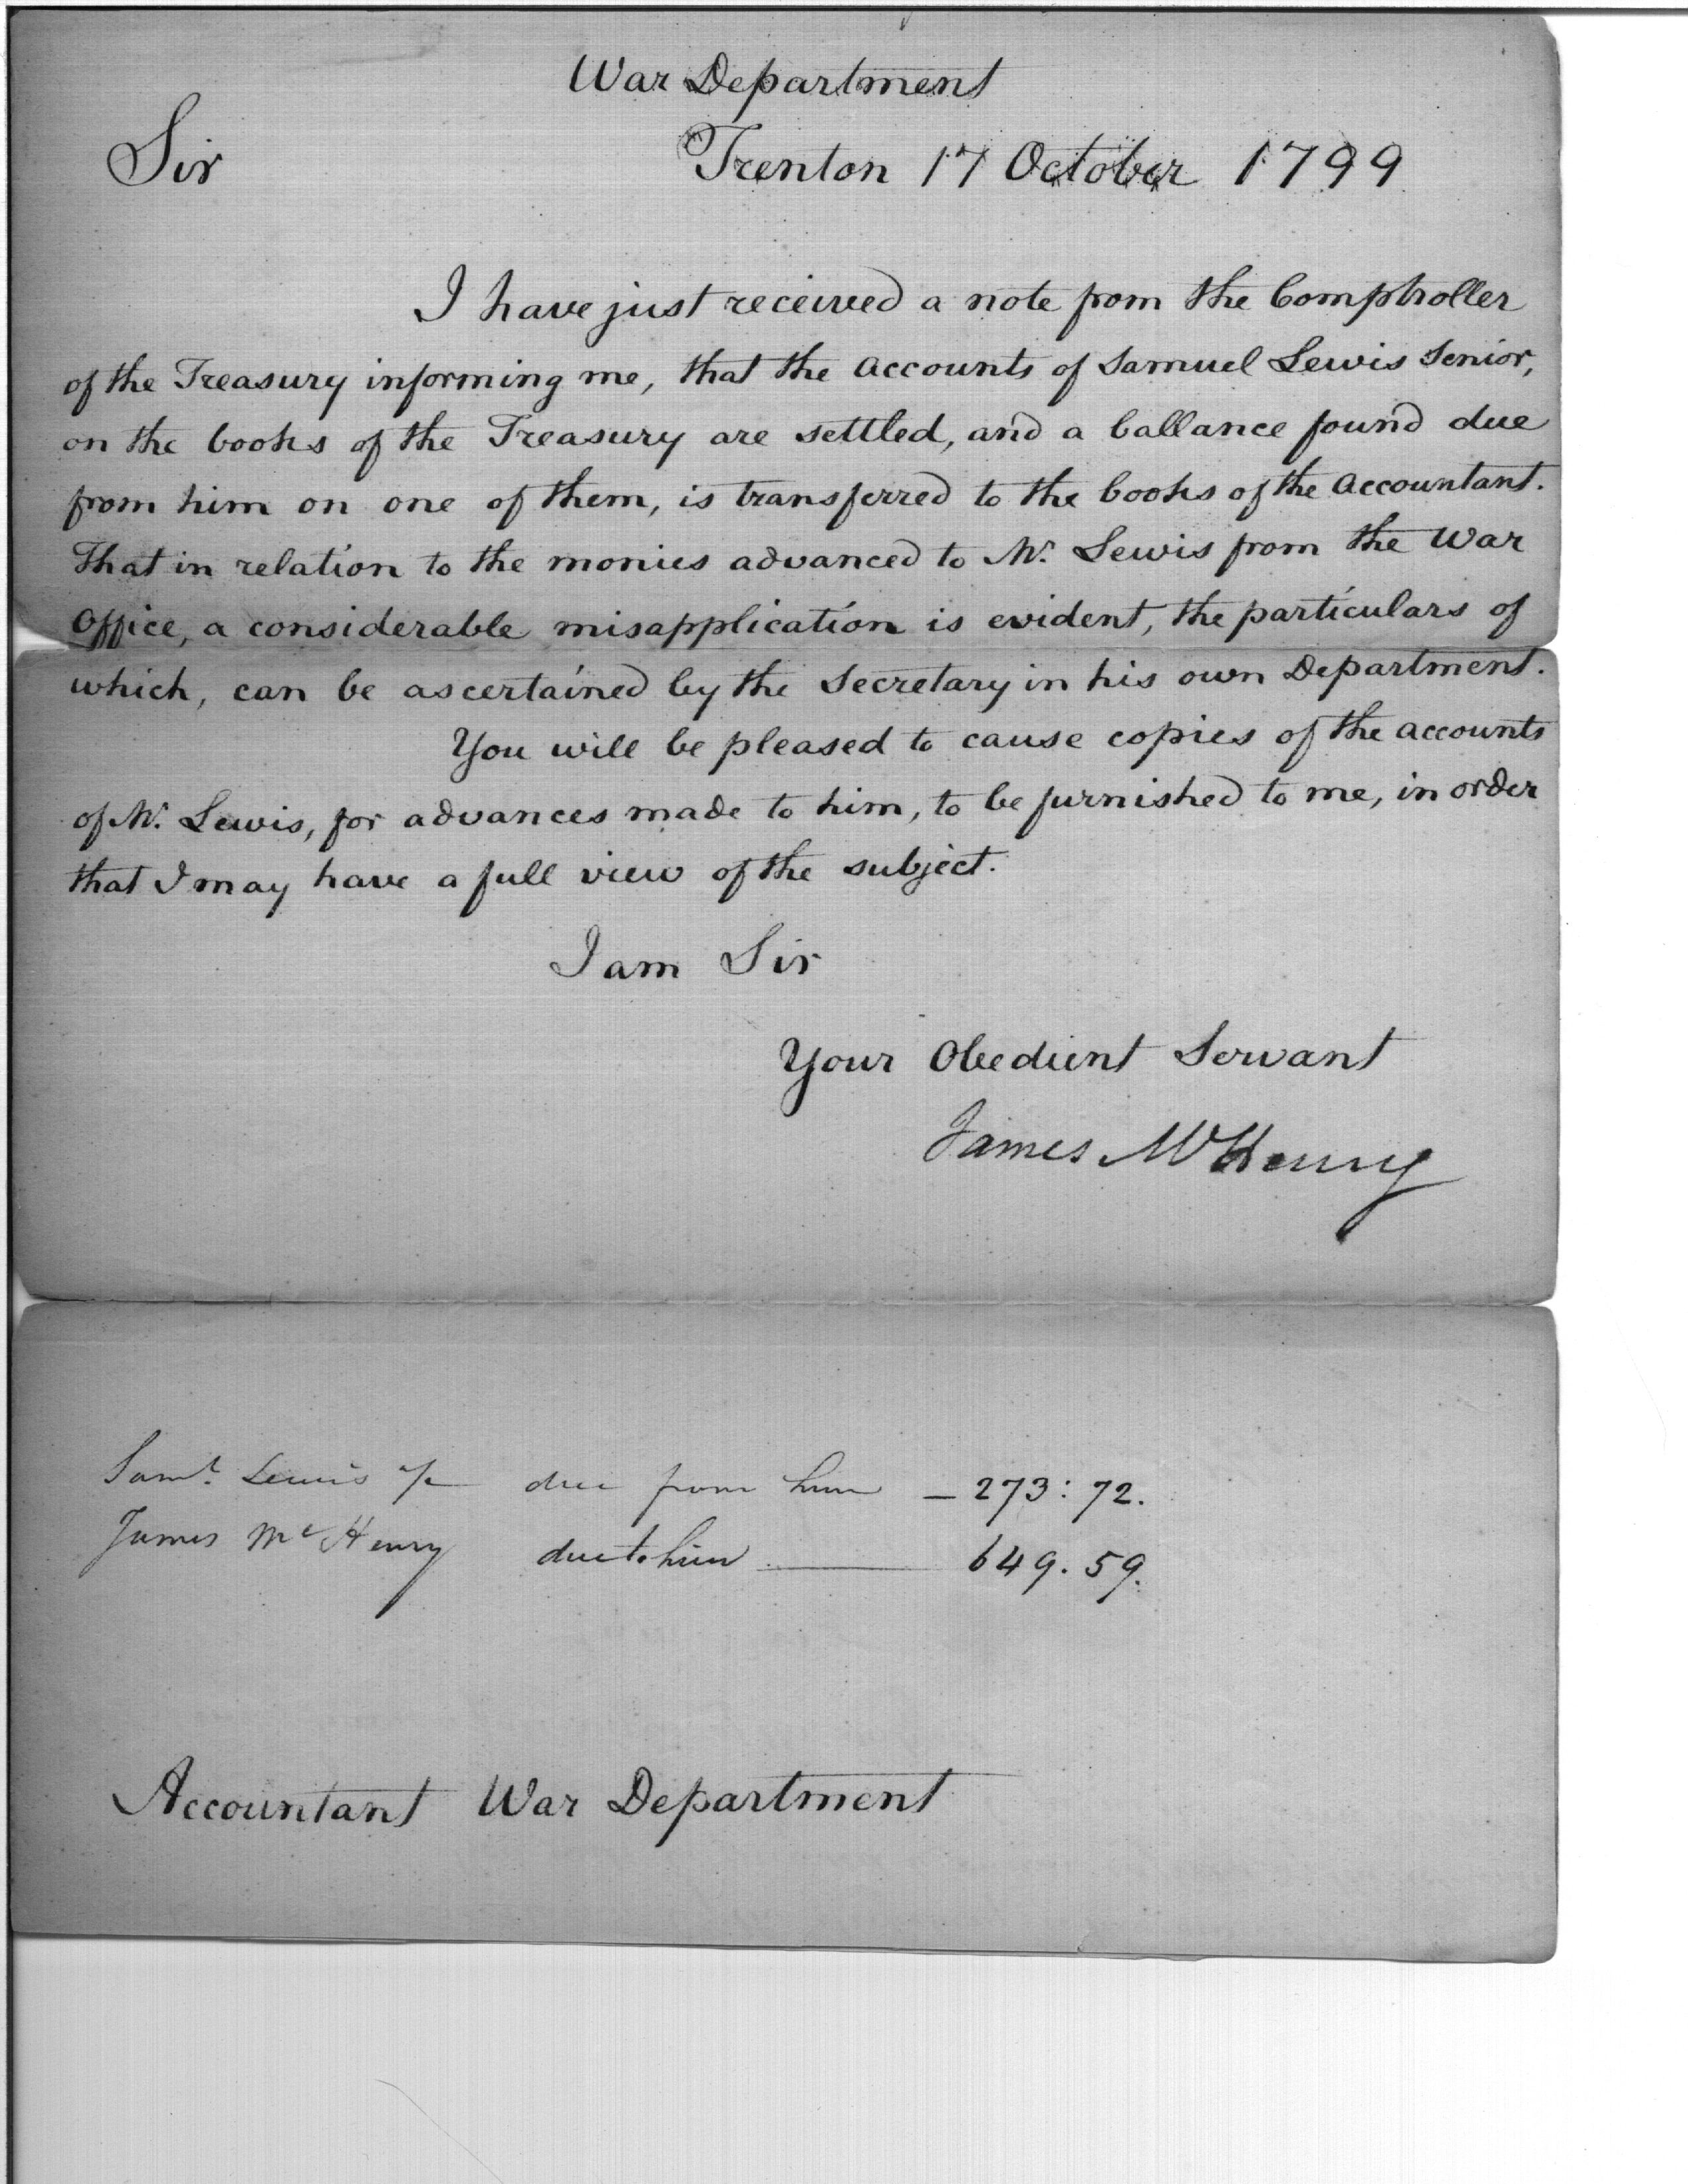 War Department
Sir Trenton 17 October 1799
I have just received a note from the Comptroller
of the Treasury informing me, that the Accounts of Samuel Lewis Senior,
on the books of the Treasury are settled, and a ballance found due
from him on one of them, is transferred to the books of the Accountant.
That in relation to the monies advanced to Mr. Lewis from the War
Office, a considerable misapplication is evident, the particulars of
which, can be ascertained by the Secretary in his own Department.
You will be pleased to cause copies of the Accounts
of Mr. Lewis, for advances made to him, to be furnished to me, in order
that I may have a full view of the subject.
I am Sir
Your Obedient Servant
James McHenry
Saml. Lewis a/c due from him — 273: 72.
James McHenry due to him — 649. 59.
Accountant War Department